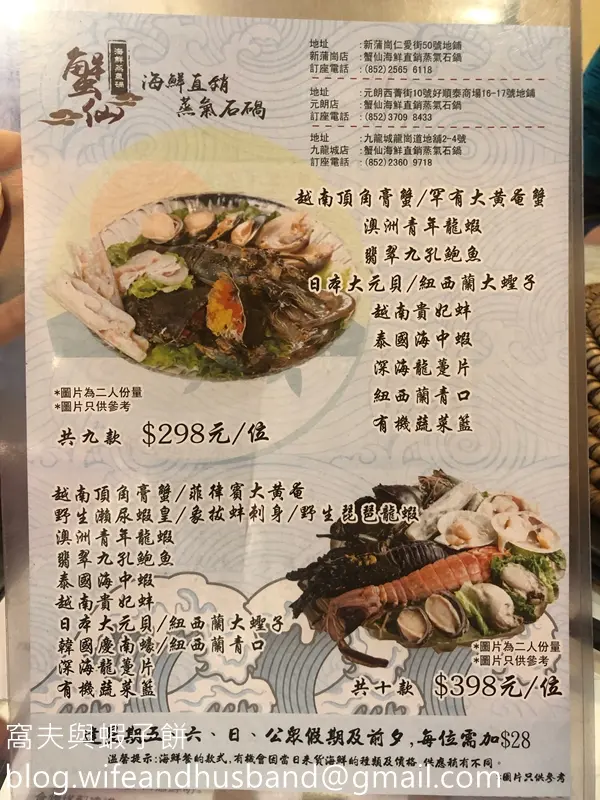 蟹仙
海鮮蒸氣石鍋
海鮮直銷
蒸氣石鍋
地址 :新蒲崗仁愛街50號地鋪
新蒲崗店 :蟹仙海鮮直銷蒸氣石鍋
訂座電話 :(852) 2565 6118
地址 :元朗西菁街10號好順泰商場16-17號地鋪
元朗店 :蟹仙海鮮直銷蒸氣石鍋
訂座電話 :(852) 3709 8433
地址 :九龍城龍崗道地舖2-4號
九龍城店 :蟹仙海鮮直銷蒸氣石鍋
訂座電話 :(852) 2360 9718
越南頂角膏蟹/罕有大黃奄蟹
澳洲青年龍蝦
翡翠九孔鮑魚
日本大元貝/紐西蘭大蟶子
越南貴妃蚌
泰國海中蝦
深海龍躉片
紐西蘭青口
有機蔬菜籃
*圖片為二人份量
*圖片只供參考
共九款 $298元/位
越南頂角膏蟹/菲律賓大黃奄
野生瀨尿蝦皇/象拔蚌刺身/野生琵琶龍蝦
澳洲青年龍蝦
翡翠九孔鮑魚
泰國海中蝦
越南貴妃蚌
日本大元貝/紐西蘭大蟶子
韓國慶南蠔/紐西蘭青口
深海龍躉片
有機蔬菜籃
*圖片為二人份量
*圖片只供參考
共十款 $398元/位
逢星期五、六、日、公眾假期及前夕,每位需加$28
溫馨提示:海鮮餐的款式,有機會因當日來貨海鮮的種類及價格,供應稍有不同。
*圖片只供參考
窩夫與蝦子餅
blog.wifeandhusband@gmail.com